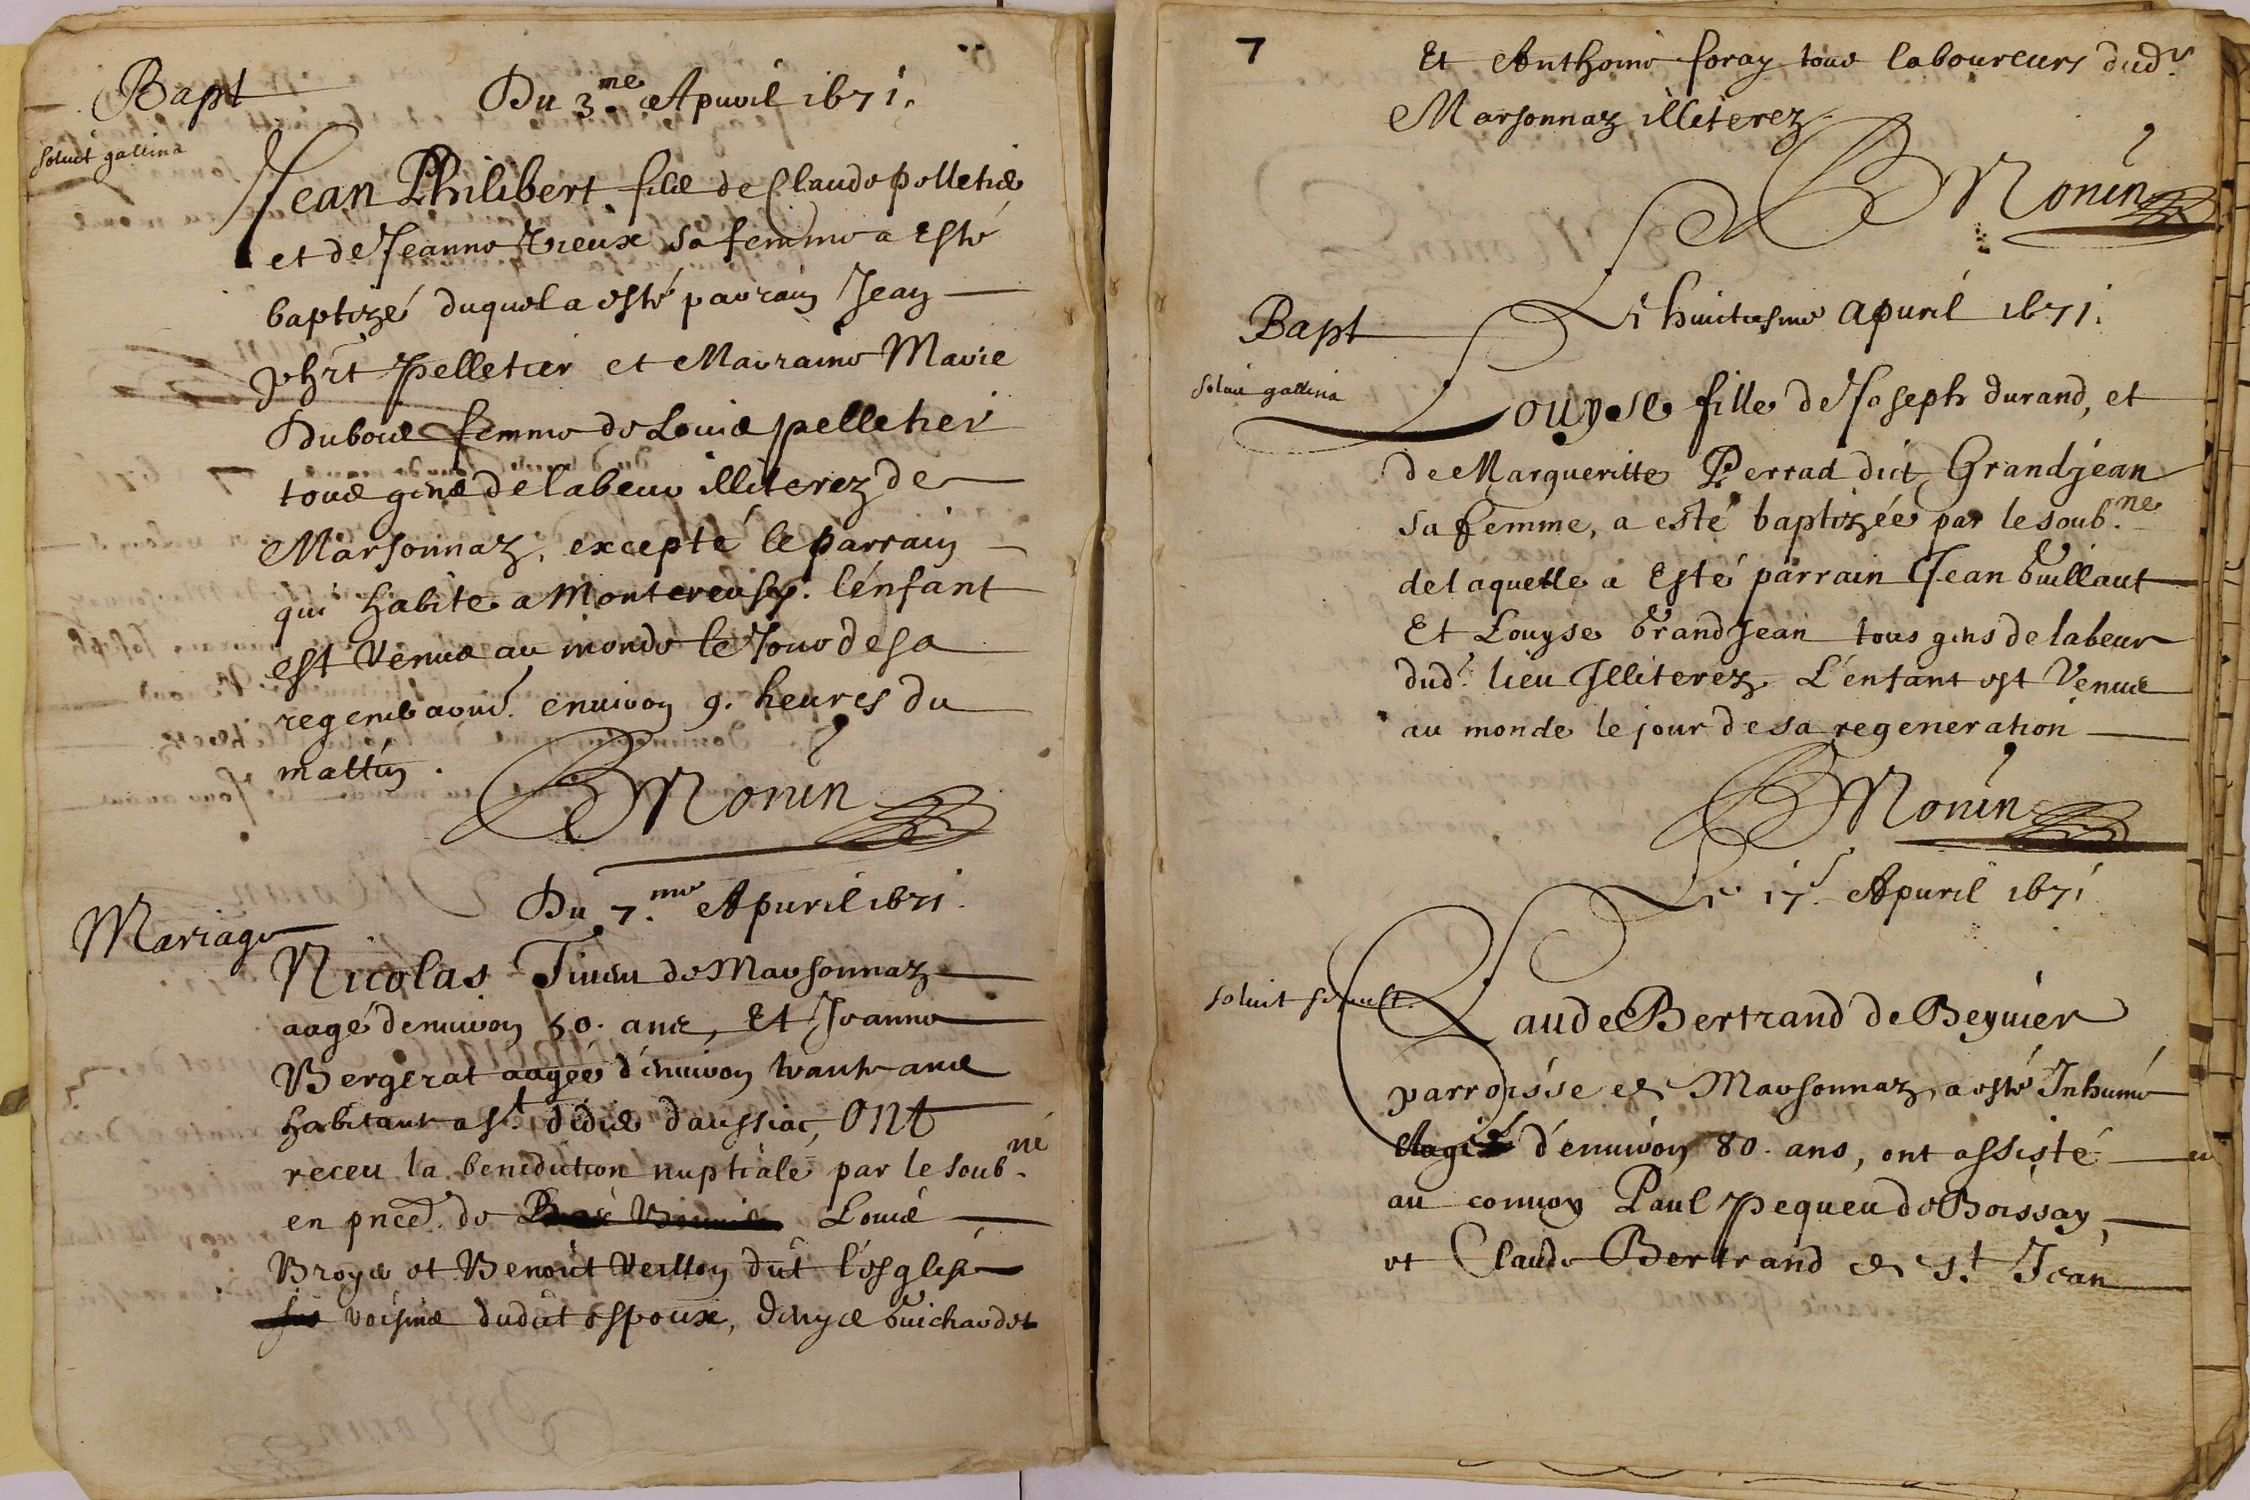 Bapt
Du 3.me Apuril 1671.
soluit gallina
Jean Philibert filz de Claude pelletier
et de Jeanne Vieux sa femme a Esté
baptizé duquel a esté parrain Jean
phrt pelletier et Marraine Marie
Dubois femme de Louis pelletier
tous gens de labeur illiterez de
Marsonnaz, excepté le parrain
qui habite a Montcreusy. l'enfant
est Venus au monde le Jour de sa
environ 9. heures du
mattin.
BMonin
Mariage
Du 7.me Apuril 1671.
Nicolas de Marsonnaz
aagé d'enuiron 50. ans, Et Jeanne
Bergerat aagée d'enuiron trante ans
habitant a St. didié d'aussiac, Ont
receu la benediction nuptiale par le soub.né
en pnce. de Louis
Broyes et Benoit Veillon dit l'esglise
voisins dudit espoux, denys Guichardet
7
Et Anthoine foray tous laboureurs dudt.
Marsonnaz illiterez
BMonin
Bapt
Le huictiesme apuril 1671.
soluit gallina
Louyse fille de Joseph durand, et
de Margueritte Perrad dict Grandjean
sa femme, a esté baptizée par le soub.ne
de laquelle a Esté parrain Jean Guillaut
Et Louyse GrandJean tous gens de labeur
dudt. lieu Illiterez L'enfant est Venue
au monde le jour de sa regeneration
BMonin
Le 17. Apuril 1671
soluit sepult.
Claude Bertrand de Beyuier
parroisse de Marsonnaz, a esté Inhumé
Aagé d'enuiron 80. ans, ont assisté
au conuoy Paul pequeu de Boissay
et Claude Bertrand de St. Jean